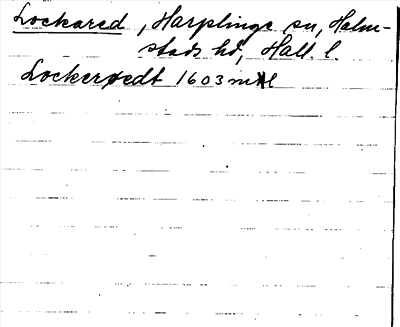 Lockared, Harplinge sn, Halm-
stads hd, Hall. l.
Lockerødt 1603 mtl